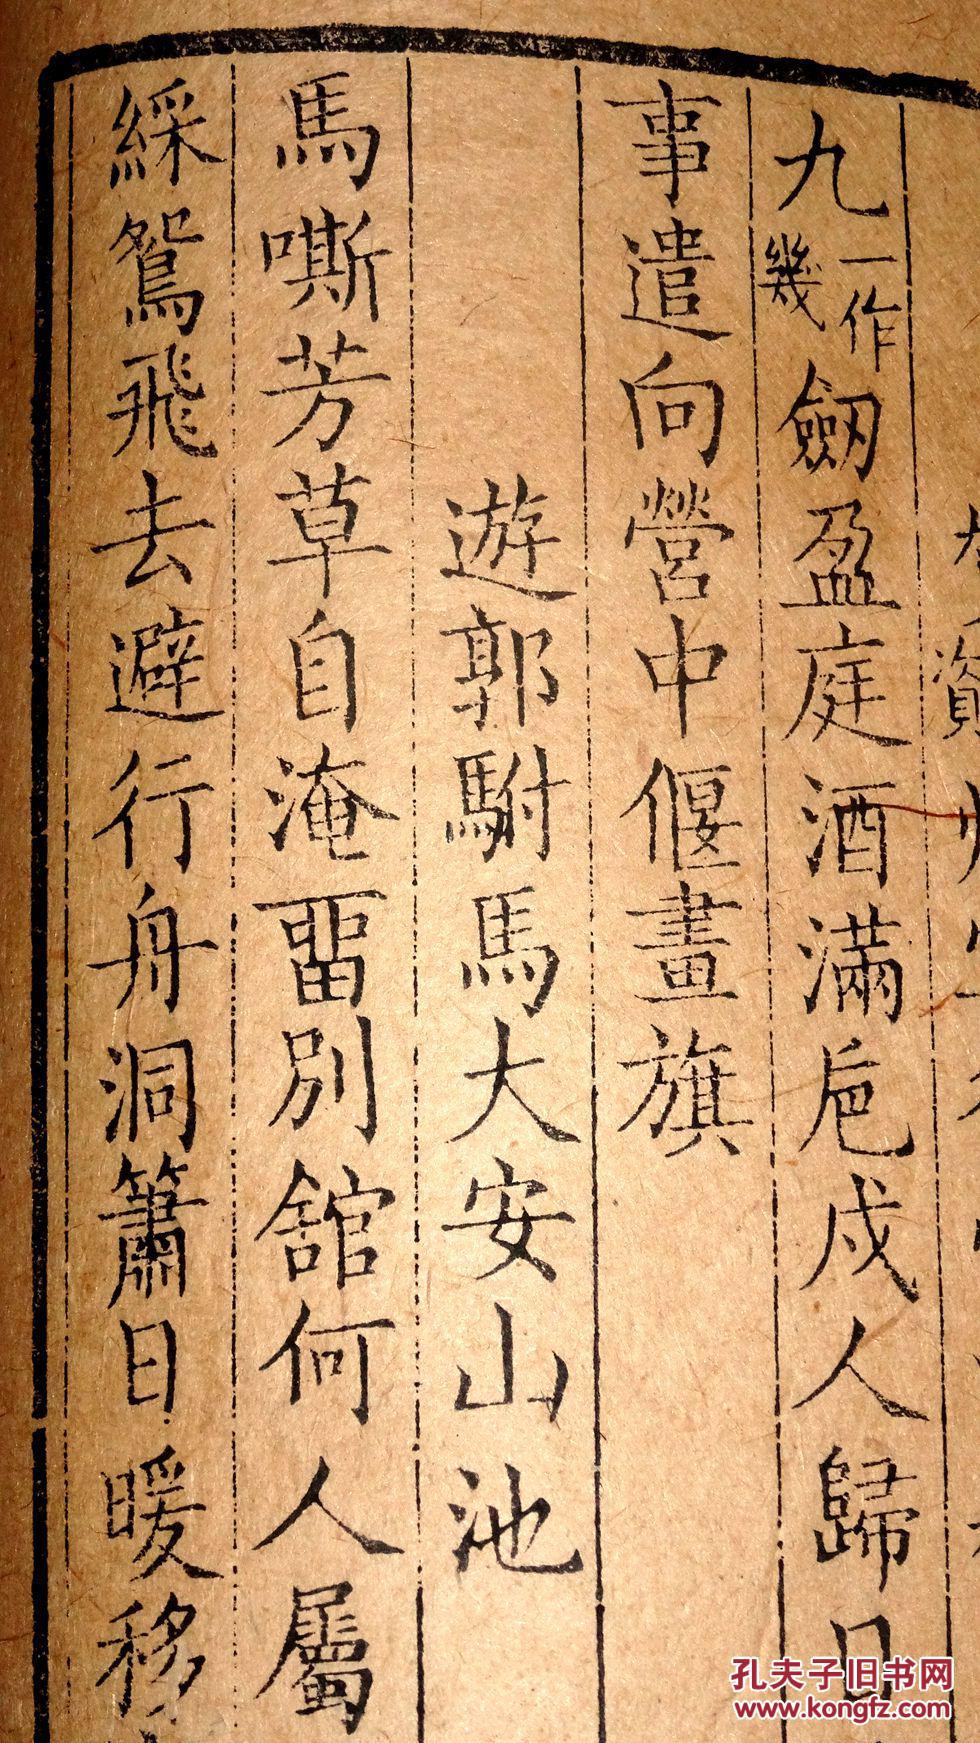 九一作幾劒盈庭酒滿巵戍人歸日
事遣向營中偃畫旗
遊郭駙馬大安山池
馬嘶芳草自淹畱別舘何人屬
綵鴛飛去避行舟洞簫日暖移
孔夫子旧书网
www.kongfz.com